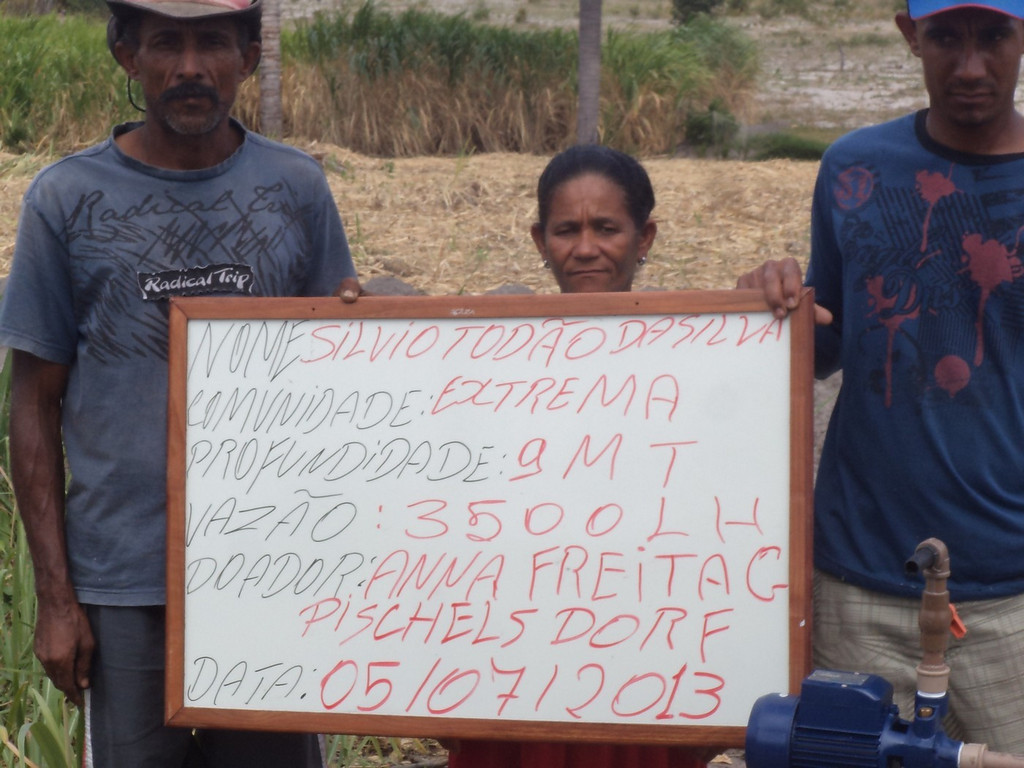 Radical Trip
Radical Trip
NOME SILVIO TODÃO DA SILVA
COMUNIDADE: EXTREMA
PROFUNDIDADE: 9 MT
VAZÃO: 3500 LH
DOADOR: ANNA FREITAG
PISCHELSDORF
DATA: 05/07/2013